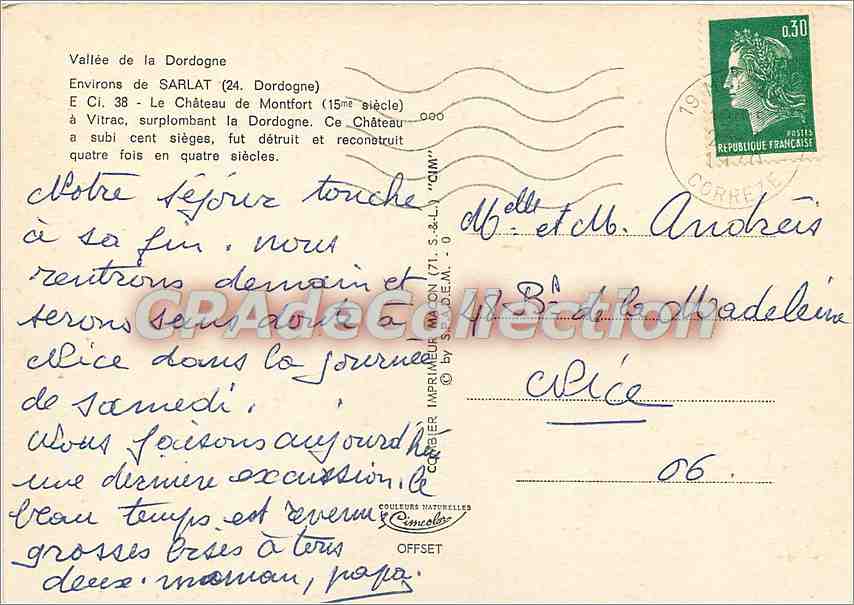 Vallée de la Dordogne
Environs de SARLAT (24. Dordogne)
E Ci. 38 - Le Château de Montfort (15me siècle)
à Vitrac, surplombant la Dordogne. Ce Château
a subi cent sièges, fut détruit et reconstruit
quatre fois en quatre siècles.
Notre séjour touche
à sa fin. nous
rentrons demain et
serons sans doute à
Nice dans la journée
de samedi.
Nous faisons aujourd'hui
une dernière excussion. le
beau temps est revenu
grosses bises à tous
deux. maman, papa.
COMBIER IMPRIMEUR MACON (71. S.-&-L.) "CIM"
© by S.P.A.D.E.M. - 0
COULEURS NATURELLES
Cimcolor
OFFSET
000
0,30
POSTES
REPUBLIQUE FRANÇAISE
19
CORREZE
Melle et M. Andréis
48 Bd de la Madeleine
Nice
06.
CPAdeCollection